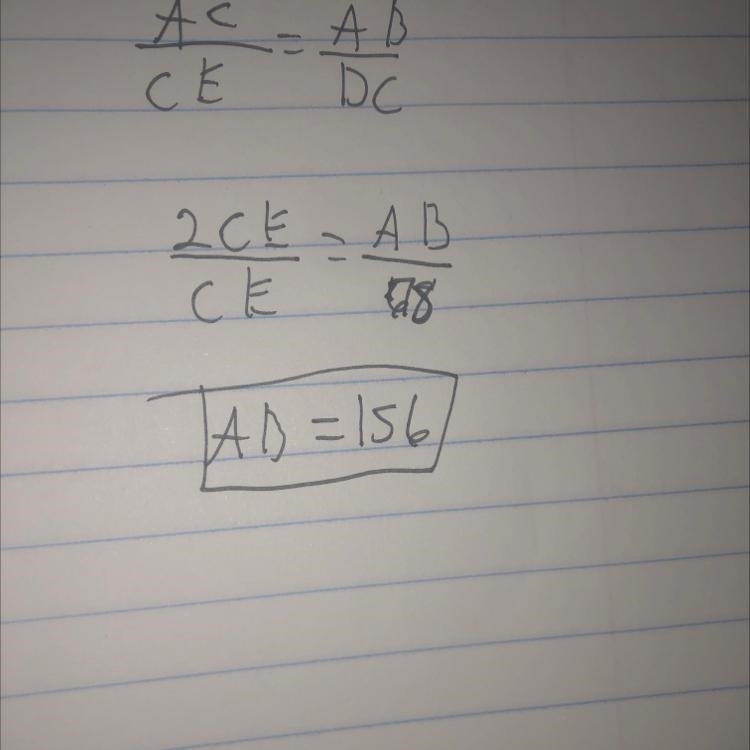 AC/CE = AB/DC
2CE/CE = AB/78
AB = 156